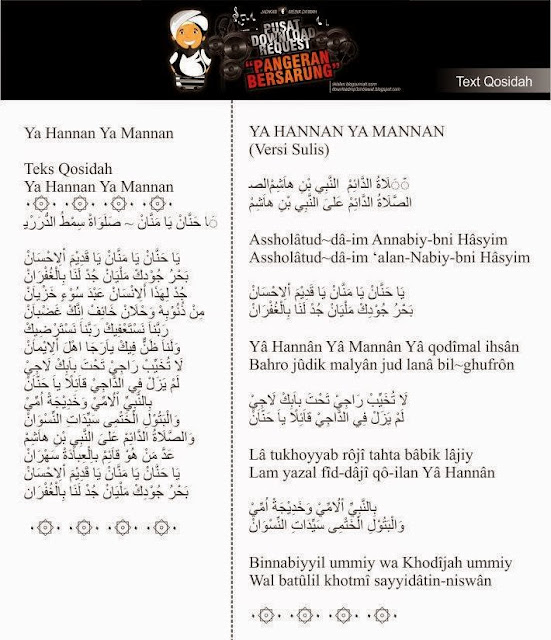 PUSAT
DOWNLOAD
REQUEST
"PANGERAN
BERSARUNG"
Text Qosidah
Ya Hannan Ya Mannan
Teks Qosidah
Ya Hannan Ya Mannan
يَا حَنَّانْ يَا مَنَّانْ ~ صَلَوَاةْ سِمْطُ الدُّرَرْ
يَا حَنَّانْ يَا مَنَّانْ يَا قَدِيْمَ اْلاِحْسَانْ
بَحْرُ جُوْدِكَ مَلْيَانْ جُدْ لَنَا بِالْغُفْرَانْ
جُدْ لِهٰذَا اْلاِنْسَانْ عَبْدَ سُوْءٍ خَزْيَانْ
مِنْ ذُنُوْبِهْ وَحْلَانْ خَائِفْ اِنَّكَ غَضْبَانْ
رَبَّنَا نَسْتَعْفِيْكَ رَبَّنَا نَسْتَرْضِيْكَ
وَلَنَا ظَنٌّ فِيْكَ يَارَجَا اَهْلِ اْلاِيْمَانْ
لَا تُخَيِّبْ رَاجِيْ تَحْتَ بَابِكْ لَاجِيْ
لَمْ يَزَلْ فِي الدَّاجِيْ قَائِلًا يَا حَنَّانْ
بِالنَّبِيِّ اْلاُمِّيْ وَخَدِيْجَةْ اُمِّيْ
وَالْبَتُوْلِ الْخَتْمِى سَيِّدَاتِ النِّسْوَانْ
وَالصَّلَاةُ الدَّائِمْ عَلَى النَّبِي بْنِ هَاشِمْ
عَدَّ مَنْ هُوَ قَائِمْ بِالْعِبَادَةْ سَهْرَانْ
يَا حَنَّانْ يَا مَنَّانْ يَا قَدِيْمَ اْلاِحْسَانْ
بَحْرُ جُوْدِكَ مَلْيَانْ جُدْ لَنَا بِالْغُفْرَانْ
YA HANNAN YA MANNAN
(Versi Sulis)
الصَّلَاةُ الدَّائِمْ النَّبِي بْنِ هاَشِمْ
الصَّلَاةُ الدَّائِمْ عَلىَ النَّبِي بْنِ هاَشِمْ
Assholâtud~dâ-im Annabiy-bni Hâsyim
Assholâtud~dâ-im ‘alan-Nabiy-bni Hâsyim
يَا حَنَّانْ يَا مَنَّانْ يَا قَدِيْمَ اْلاِحْسَانْ
بَحْرُ جُوْدِكَ مَلْيَانْ جُدْ لَنَا بِالْغُفْرَانْ
Yâ Hannân Yâ Mannân Yâ qodîmal ihsân
Bahro jûdik malyân jud lanâ bil~ghufrôn
لَا تُخَيِّبْ رَاجِيْ تَحْتَ بَابِكْ لَاجِيْ
لَمْ يَزَلْ فِي الدَّاجِيْ قَائِلًا يَا حَنَّانْ
Lâ tukhoyyab rôjî tahta bâbik lâjiy
Lam yazal fîd-dâjî qô-ilan Yâ Hannân
بِالنَّبِيِّ اْلاُمِّيْ وَخَدِيْجَةْ اُمِّيْ
وَالْبَتُوْلِ الْخَتْمِى سَيِّدَاتِ النِّسْوَانْ
Binnabiyyil ummiy wa Khodîjah ummiy
Wal batûlil khotmî sayyidâtin-niswân